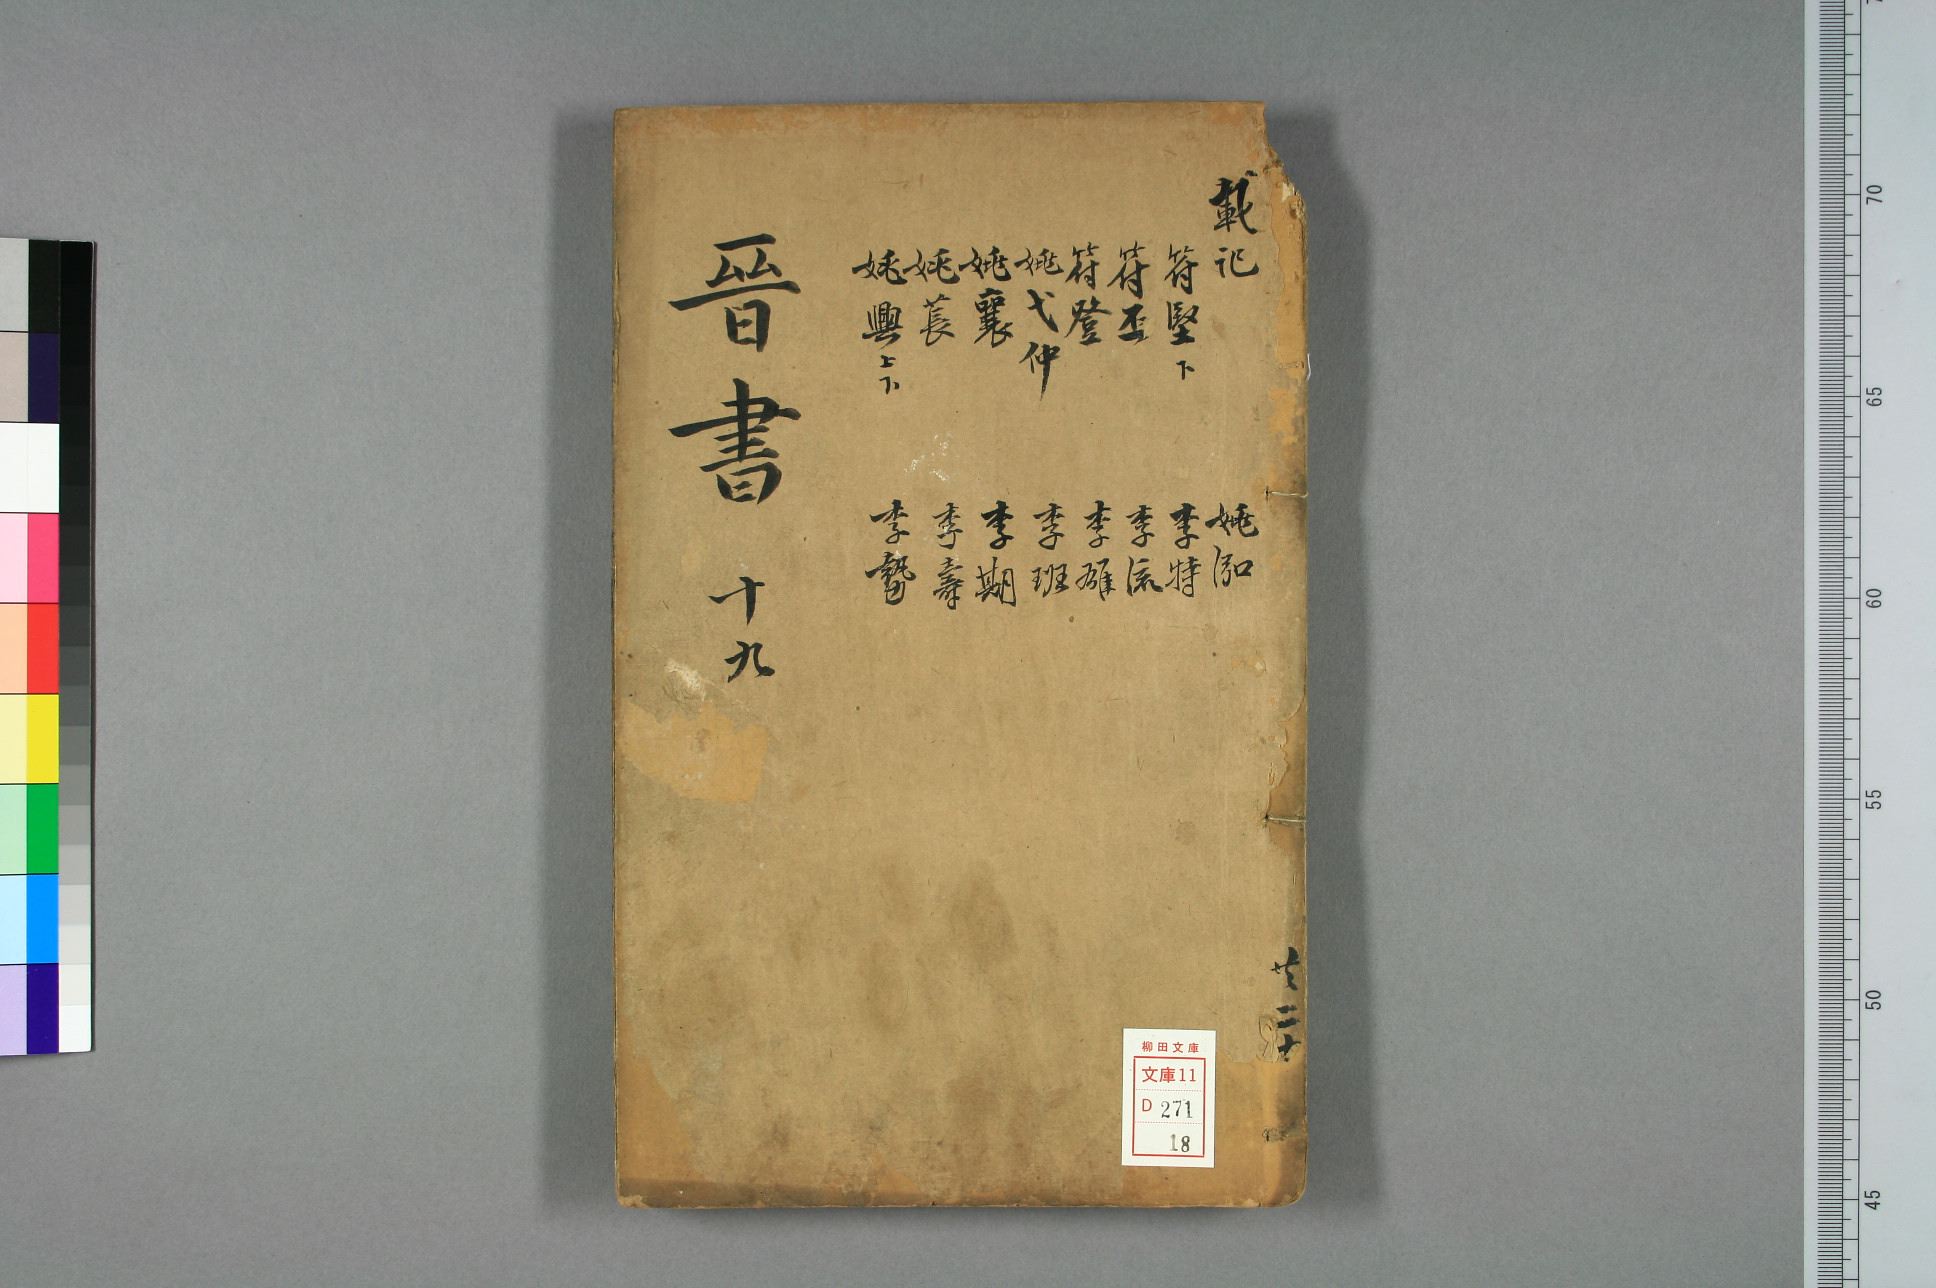 載記
符堅下
符丕
符登
姚弋仲
姚襄
姚萇
姚興上下
姚泓
李特
李流
李雄
李班
李期
李壽
李勢
晉書 十九
共二十
柳田文庫
文庫11
D 271
18
70
65
60
55
50
45